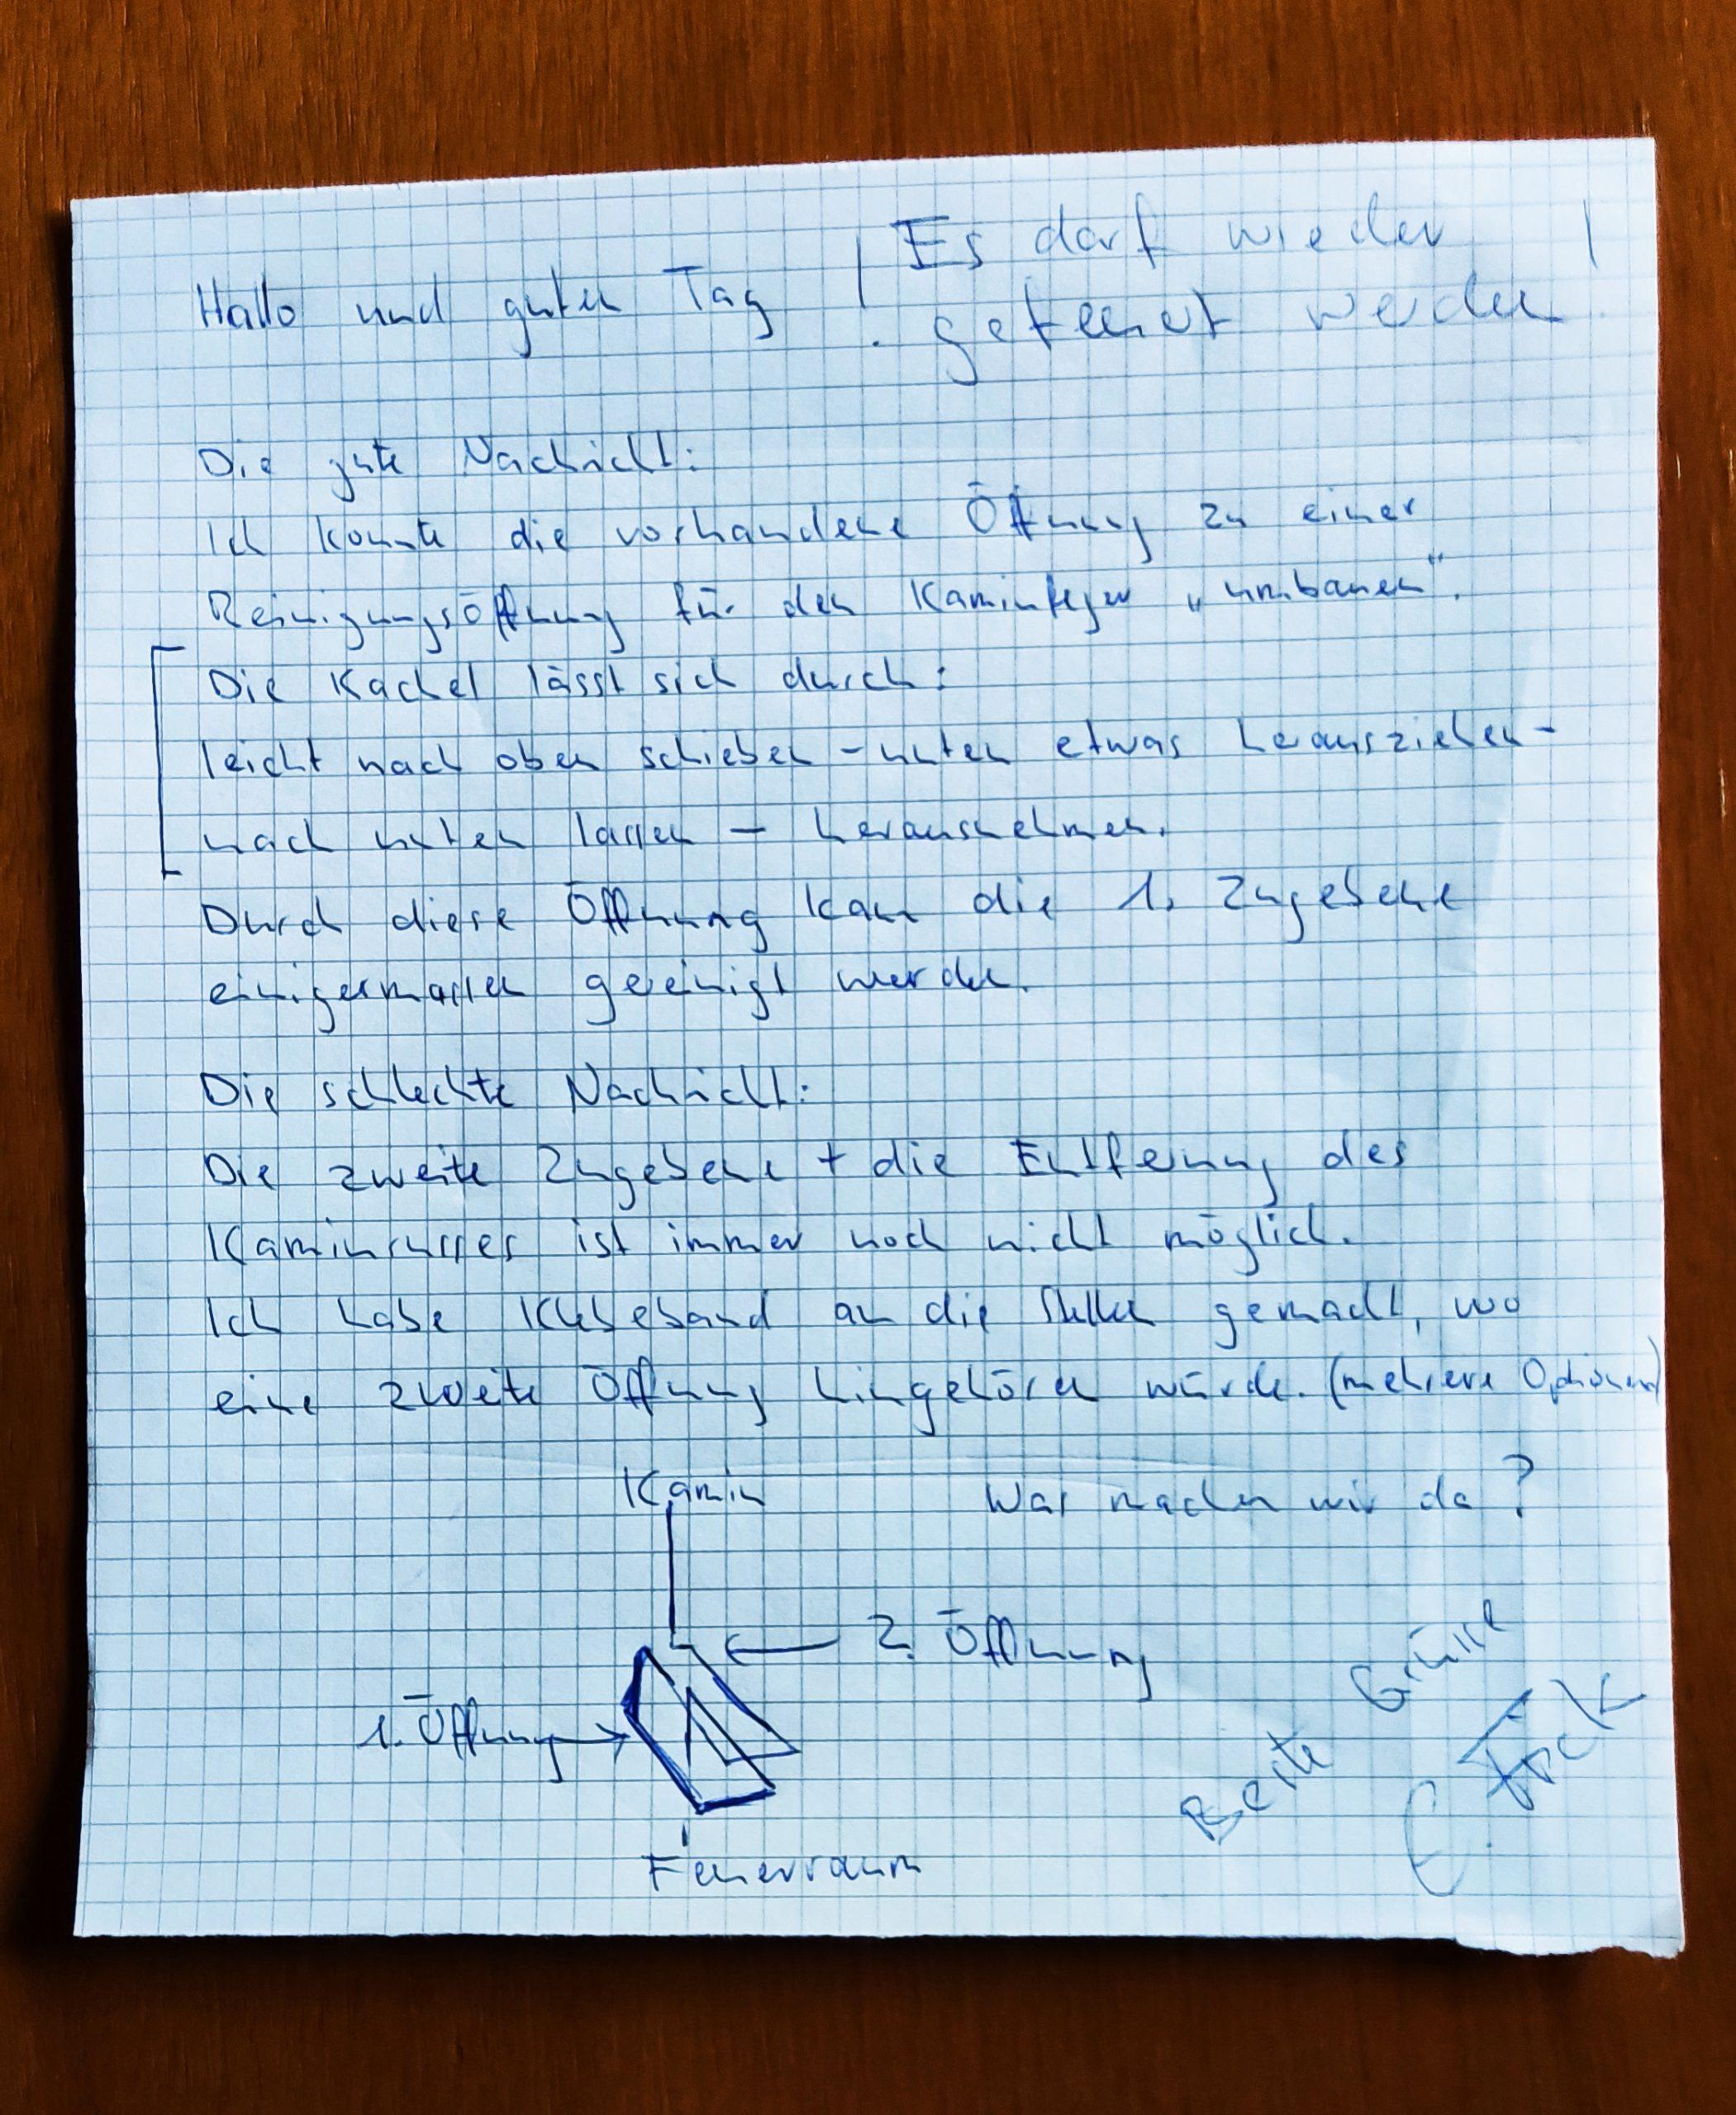 Hallo und guten Tag
! Es darf wieder !
gefeuert werden
Die gute Nachricht:
Ich konnte die vorhandene Öffnung zu einer
Reinigungsöffnung für den Kaminfeger „umbauen“.
Die Kachel lässt sich durch:
leicht nach oben schieben - unten etwas herausziehen -
nach unten lassen - herausnehmen.
Durch diese Öffnung kann die 1. Zugebene
einigermassen gereinigt werden.
Die schlechte Nachricht:
Die zweite Zugebene + die Entfernung des
Kaminrusses ist immer noch nicht möglich.
Ich habe Klebeband an die Stellen gemacht, wo
eine zweite Öffnung hingehören würde. (mehrere Optionen)
Kamin
Was machen wir da ?
2. Öffnung
1. Öffnung
Feuerraum
Beste Grüsse